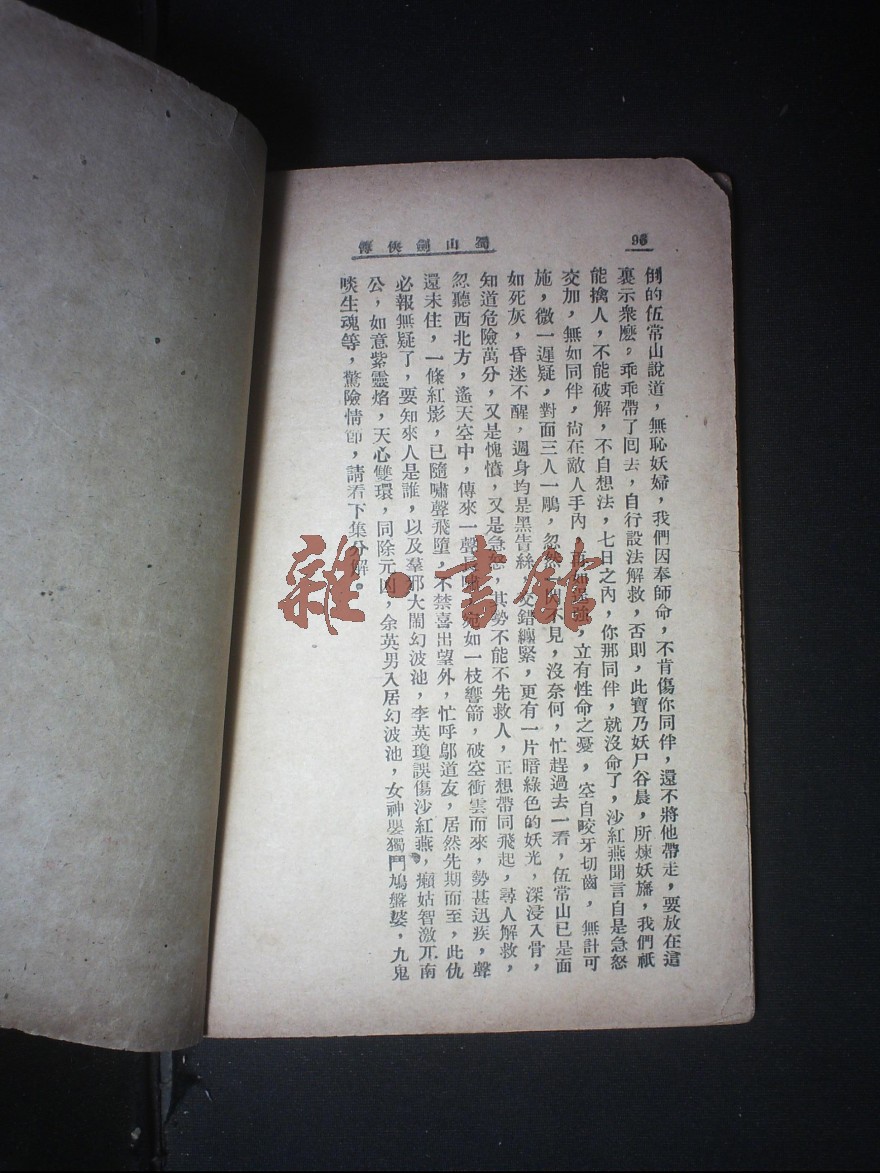 96
蜀山劍俠傳
倒的伍常山說道，無恥妖婦，我們因奉師命，不肯傷你同伴，還不將他帶走，要放在這
裏示衆麽，乖乖帶了囘去，自行設法解救，否則，此寶乃妖尸谷晨，所煉妖旛，我們祇
能擒人，不能破解，不自想法，七日之內，你那同伴，就沒命了，沙紅燕聞言自是急怒
交加，無如同伴，尙在敵人手內，再如强，立有性命之憂，空自咬牙切齒，無計可
施，微一遲疑，對面三人一鵰，忽然一閃不見，沒奈何，忙趕過去一看，伍常山已是面
如死灰，昏迷不醒，週身均是黑眚絲，交錯纏緊，更有一片暗綠色的妖光，深浸入骨，
知道危險萬分，又是愧憤，又是急怒，其勢不能不先救人，正想帶同飛起，尋人解救，
忽聽西北方，遙天空中，傳來一聲長嘯，宛如一枝響箭，破空衝雲而來，勢甚迅疾，聲
還未住，一條紅影，已隨嘯聲飛墮，不禁喜出望外，忙呼鄔道友，居然先期而至，此仇
必報無疑了，要知來人是誰，以及羣邪大鬧幻波池，李英瓊誤傷沙紅燕，癩姑智激兀南
公，如意紫靈焰，天心雙環，同除元凶，余英男入居幻波池，女神嬰獨鬥鳩盤婆，九鬼
啖生魂等，驚險情節，請看下集分解。
雜·書館